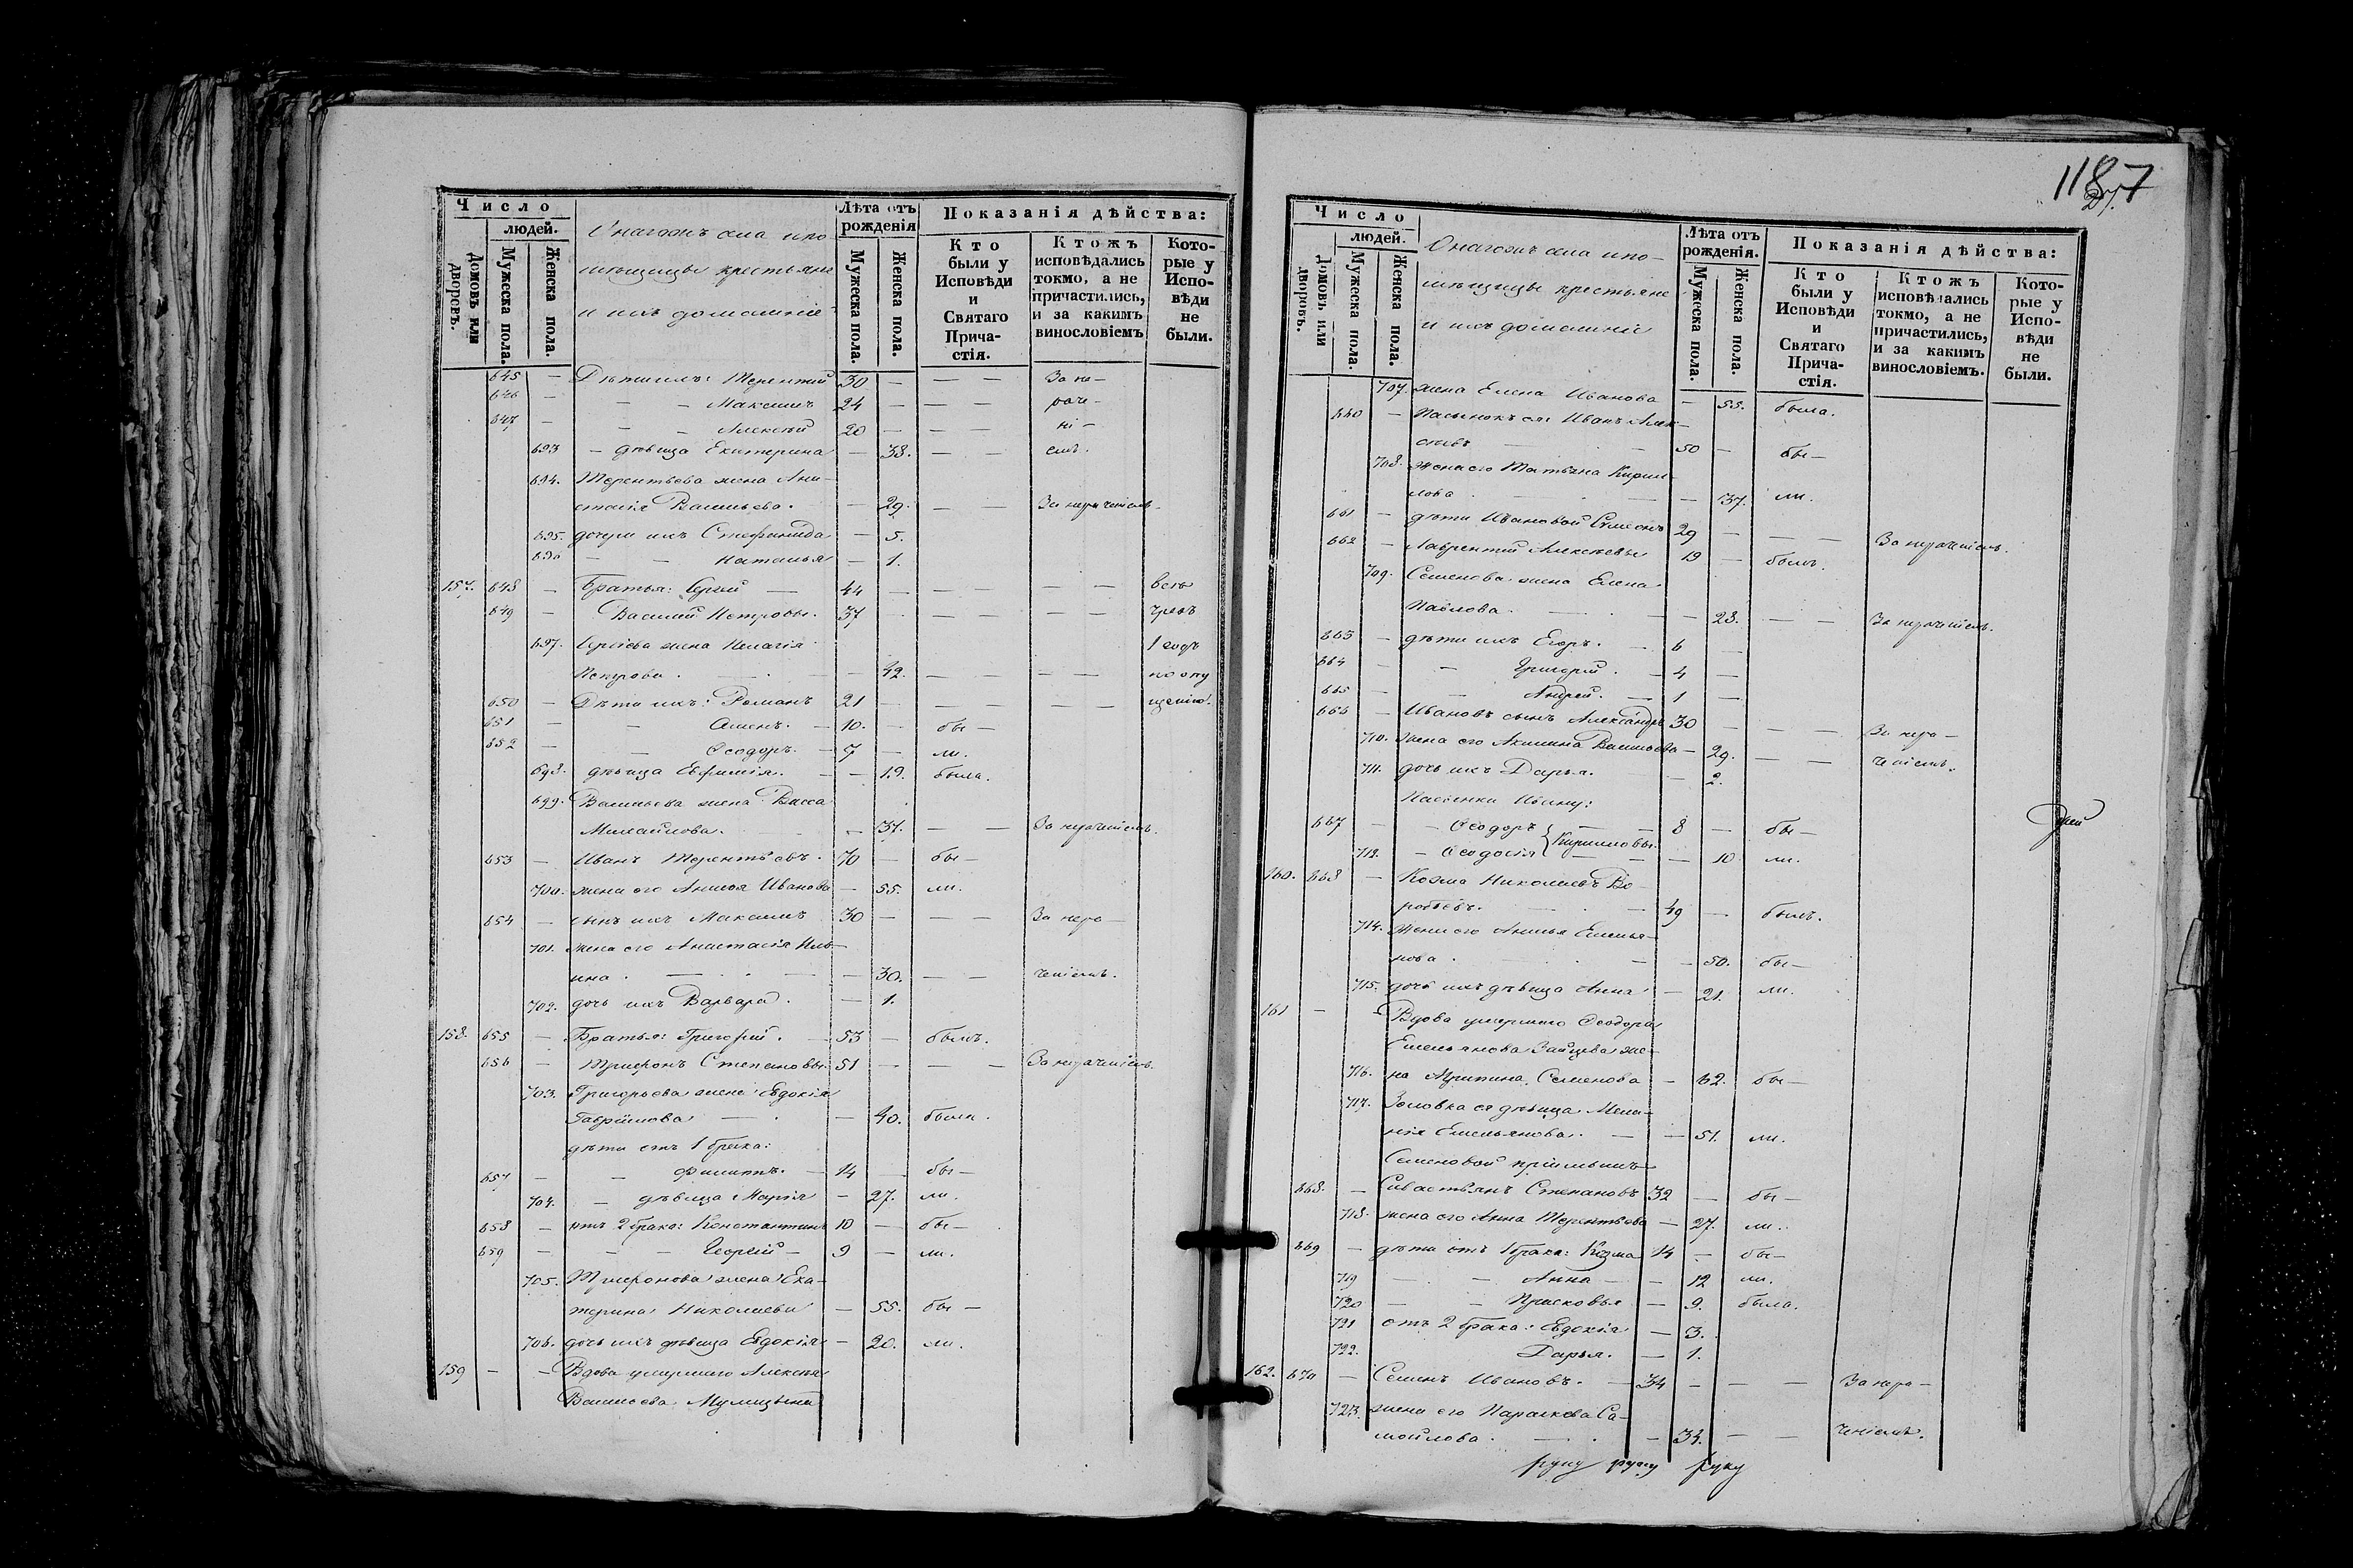 1187
27.
Число
людей.
Домовъ или дворовъ.
Мужеска пола.
Женска пола.
села
крестьяне
и ихъ домашніе
Лѣта отъ рожденія
Мужеска пола.
Женска пола.
Показанія дѣйства:
Кто были у Исповѣди и Святаго Прича-стія.
Ктожъ исповѣдались токмо, а не причастились, и за какимъ винословіемъ
Кото-рые у Испо-вѣди не были.
645 — Дѣти ихъ: Терентий 30 — — — За не-
646 — — — Максимъ 24 — — — раче-
647 — — — Алексѣй 20 — — — ні-
693 — дѣвица Екатерина — 38. — — емъ.
694. Терентьева жена Ана-
стасія Васильева. — 29. — — За нераченіемъ.
695. дочери ихъ Стефанида — 5.
696 — Наталья — 1.
157. 648 — Братья: Сергій — 44 — — — — — весь
649 — Василій Петровы. 37 — — — — — чрезъ
697. Сергіева жена Пелагія 1 годъ
Петрова. — — 42. — — — — по опу
650 — Дѣти ихъ: Романъ 21 — — — — — щенію.
651 — — Семенъ. — 10. — бы —
652 — — Ѳеодоръ. — 7 — ли.
698. дѣвица Евфимія. — — 19. была.
699. Васильева жена Васса
Михайлова. — 37. — — За нераченіемъ.
653 — Иванъ Терентьевъ. 70 — бы —
700. жена его Анисья Иванова — 55. ли.
654 — сынъ ихъ Максимъ 30 — — — За нера —
701. жена его Анастасія Иль-
ина. — — — 30. — — ченіемъ.
702. дочь ихъ Варвара. — 1.
158. 655 — Братья: Григорій. — 53 — былъ.
656 — Трифонъ Степановы. 51 — — — За нераченіемъ.
703. Григорьева жена Евдокія
Гаврилова — — 40. была.
дѣти отъ 1 брака:
657 — — Филиппъ. — 14 — бы —
704. — дѣвица Марія — 27. ли.
658 — отъ 2 брака: Константинъ 10 — бы —
659 — — — Георгій — 9 — ли.
705. Трифонова жена Ека-
терина Николаева — 55. бы —
706. дочь ихъ дѣвица Евдокія — 20. ли.
159 — — Вдова умершаго Алексѣя
Васильева
Число
людей.
Домовъ или дворовъ.
Мужеска пола.
Женска пола.
села
крестьяне
и ихъ домашніе
Лѣта отъ рожденія.
Мужеска пола.
Женска пола.
Показанія дѣйства:
Кто были у Исповѣди и Святаго Прича-стія.
Ктожъ исповѣдались токмо, а не причастились, и за какимъ винословіемъ.
Кото-рые у Испо-вѣди не были.
707. жена Елена Иванова — 55. была.
660 — Пасынокъ ея Иванъ Алек-
сѣевъ — — 50 — бы —
708. жена его Татьяна Кирил-
лова. — — 37. ли.
661 — дѣти Ивановой Симеонъ 29 — — — За нераченіемъ.
662 — Лаврентій Алексѣевы 19 — былъ.
709. Семенова жена Елена
Павлова. — — 28. — — За нераченіемъ.
663 — дѣти ихъ Егоръ. — 6 —
664 — — Григорій. — 4 —
665 — — Андрей. — 1 —
666 — Ивановъ сынъ Александръ 30 — — — За нера —
710. жена его Акилина Васильева — 29. — — ченіемъ.
711. дочь ихъ Дарья. — 2.
667 — — Ѳеодоръ — — 8 — бы —
Кирилловы.
712. — Ѳеодосія — — — 10 ли.
160. 668 — Козма Николаевъ Во-
робьевъ. — — 49 — былъ.
714. жена его Анисья Емелья-
нова. — — 50. бы —
715. дочь ихъ дѣвица Анна — 21. ли.
161 — — Вдова умершаго Ѳеодора
Емельянова Зайцева же-
716. на Агрипина Семенова — 62. бы —
717. Золовка ея дѣвица Мела-
нія Емельянова. — — 51. ли.
Семеновой пріимышъ
668. — Севастьянъ Степановъ 32 — бы —
718. жена его Анна Терентьева — 27. ли.
669 — дѣти отъ 1 брака: Козма 14 — бы —
719 — — Анна — — 12 ли.
720 — — Прасковья — 9. была.
721 отъ 2 брака: Евдокія — 3.
722. Дарья. — 1.
162. 670 — Семенъ Ивановъ. — 34 — — — За нера —
723. жена его Параскева Са-
мойлова. — — 34. — — ченіемъ.
руку руку руку